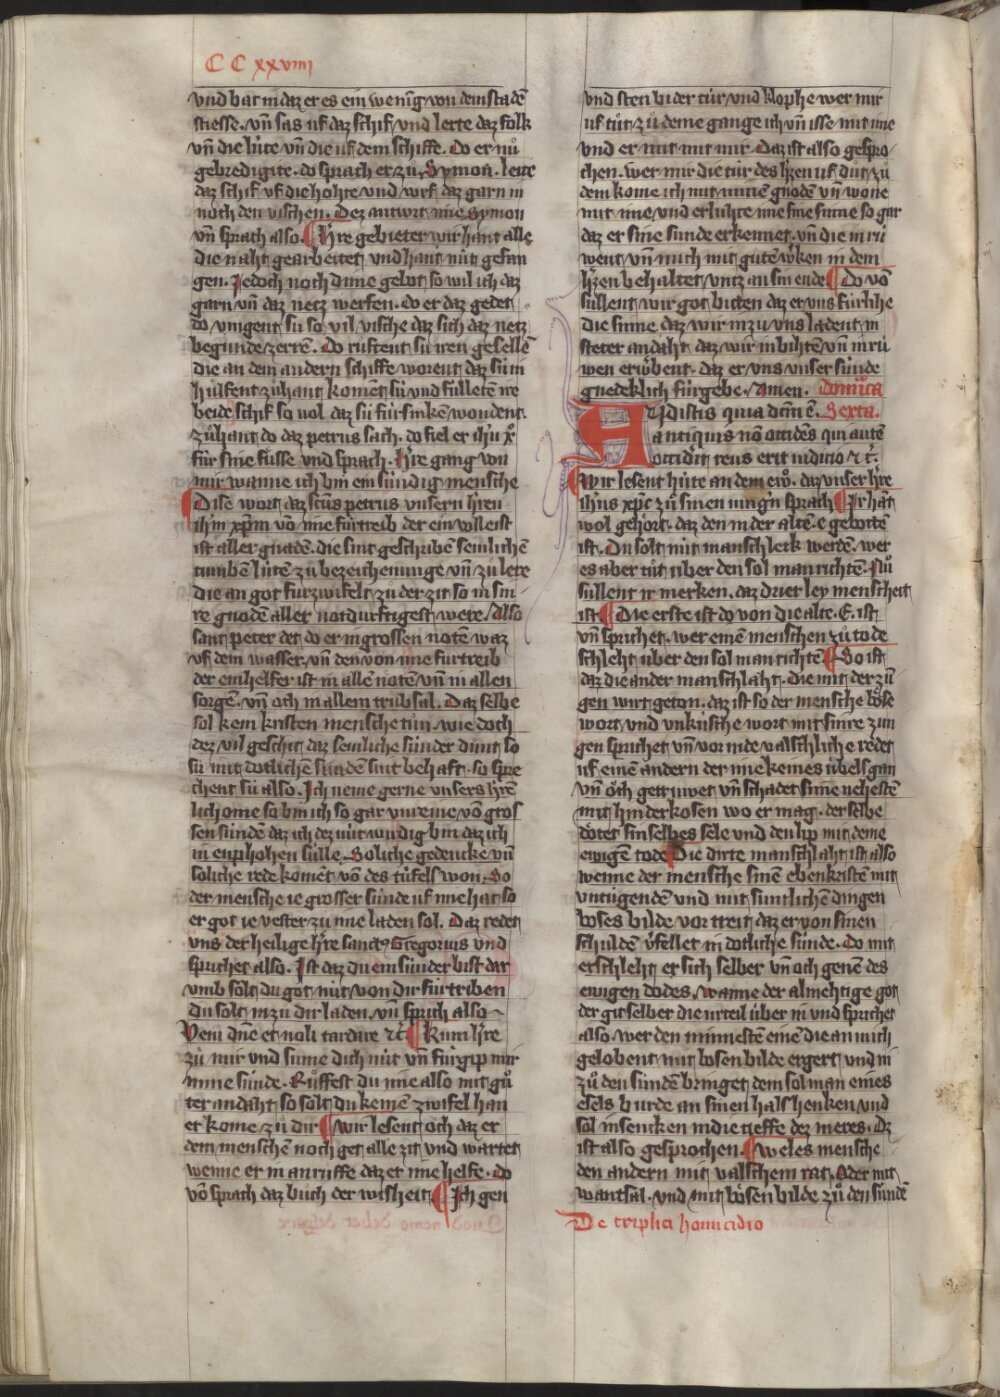 CCxxviiii
vnd bat in daz er es ein wenig von dem stade
stiesse. vn̄ sas uf daz schif vnd lerte daz folk
vn̄ die lúte vn̄ die uf dem schiffe. Do er nu
gebredigite. do sprach er zů Symon. leite
daz schif vf die hohte vnd wirf daz garn in
noch den vischen. Dez antwrt ime Symon
vn̄ sprach also. hʼre gebieter wir hant alle
die naht gearbeitet vnd hant nút gefan
gen. Jedoch noch dime gebot so wil ich daz
garn vn̄ daz netz werfen. do er daz gedet.
do vingent sú so vil vische daz sich daz netz
begunde zerrē. Do ruftent sú iren gesellē
die an dem andern schiffe worent daz sú in
húlfent zůhant komēt sú vnd fulletē ire
beide schif so vol daz sú fúrsinkē wondent.
zůhant do daz petrus sach. do fiel er ihū xͦ
fúr sine fússe vnd sprach. hʼre gang von
mir wanne ich bin ein súndig mensche
Dise wort daz sc̄tus petrus vnsern hʼren
ihm xp̄m vō ime fúrtreib der ein volleist
ist aller gnadē. die sint geschribē semlichē
tumbē lútē zů bezeichenunge vn̄ zů lere
die an got fúrzwifelt zů der zit so in sin
re gnoden aller notdurftigest were. Also
sant peter det do er in grossen notē waz
vf dem wasser. vn̄ den von ime furtreib
der ein helfer ist in allē notē vn̄ in allen
sorgē. vn̄ och in allem trubsal. Daz selbe
sol kein kristen mensche tůn. wie doch
dez vil geschit daz semliche súnder dunt so
sú mit dotlichē súndē sint behaft. so spre
chent sú also. Ich neme gerne vnsers hʼrē
lichome so bin ich so gar vnreine vō gros
sen súndē daz ich dez nút wirdig bin daz ich
in enpfohen súlle. Soliche gedencke vn̄
soliche rede komēt vō des túfels won. So
der mensche ie grosser súnde uf ime hat so
er got ie vester zu ime laden sol. Daz redet
vns der heilige hʼre sanctꝰ Gregorius vnd
sprichet also. Ist daz du ein súnder bist dar
vmb solt du got nút von dir fúrtriben
du solt in zu dir laden. vn̄ sprich also
Veni dn̄e et noli tardare ꝛc̄ Kum hʼre
zů mir vnd sume dich nút vn̄ fúrgip mir
mine súnde. Růffest du ime also mit gů
ter andaht so solt du keinē zwifel han
er kome zů dir wir lesent och daz er
dem menschen noch get alle zit vnd wartet
wenne er in anruffe daz er ime helfe. do
vō sprach daz bůch der wisheit Ich gen
vnd sten bi der túr vnd klophe wer mir
uf tůt zů deme gange ich vn̄ isse mit ime
vnd er mit mir. Daz ist also gespro
chen. wer mir die túr des hʼzen uf důt zů
dem kome ich mit minē gnodē vn̄ wone
mit ime vnd erluhte ime sine sinne so gar
daz er sine sunde erkennet vn̄ die in rú
went vn̄ mich mit gůtē wʼken in dem
hʼzen behaltet vntz an sin ende Do vō
súllent wir got bitten daz er vns fúrlihe
die sinne daz wir in zu vns ladent in
steter andaht. daz wir in bihtē vn̄ in rú
wen erwʼbent. daz er vns vnser súnde
gnedeklich fúrgebe. Amen. domīca
Sexta.
Audistis quia dictū ē.
antiquis nō occides qui autē
occidit reus erit iudicio ꝛc̄.
Wir lesent húte an dem ewͦ. daz vnser hʼre
ihūs xp̄c zů sinen iungʼn sprach Ir hāt
wol gehort. daz den in der altē. e gebottē
ist. Du solt nút manschleck werdē. wer
es aber tůt úber den sol man richtē. Nů
súllent ir merken. daz drier ley menscheit
ist Die erste ist do von die alte. E. ist
vn̄ sprichet. wer einē menschen zů tode
schleht úber den sol man richtē So ist
daz die ander manschlaht. die mit der zū
gen wirt geton. daz ist so der mensche böse
wort vnd vnkusche wort mit sinre zun
gen sprichet vn̄ vor in de valschliche redet
uf einē andern der ime keines úbels gan
vn̄ och getruwet vn̄ schadet sime nehestē
mit hinderkosen wo er mag. der selbe
dötet sin selbes sele vnd den lip mit deme
ewigē tode Die dirte manschlaht ist also
wenne der mensche sinē ebenkristē mit
vntugendē vnd mit suntlichē dingen
böses bilde vortreit daz er von sinen
schuldē vʼfellet in dotliche sunde. Do mit
erschleht er sich selber vn̄ och genē des
ewigen dodes. wanne der almehtige got
der git selber die urteil úber in vnd sprichet
also. wer den minnestē einē die an mich
gelobent mit bosen bilde ergert vnd in
zů den súndē bringet dem sol man eines
esels burde an sinen hals henken vnd
sol in sencken in die tieffe dez meres. Dz
ist also gesprochen. weles mensche
den andern mit valschem rat. Oder mit
wantsal. vnd mit bösen bilde zů den súndē
De triplici homicidio